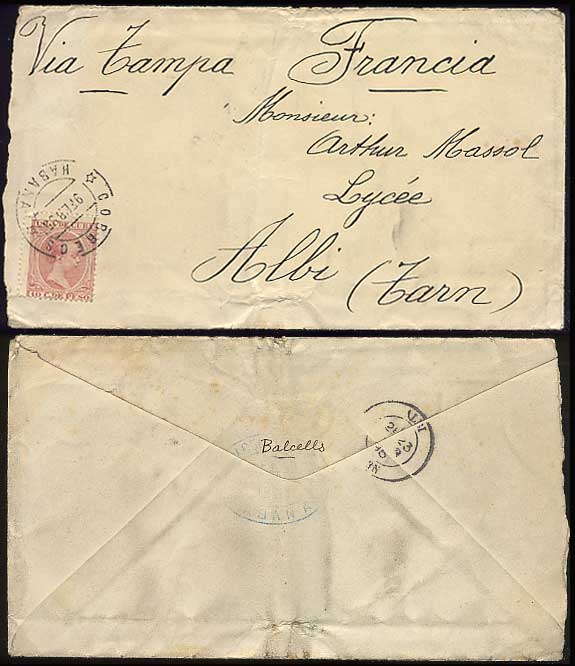 Via Tampa Francia
Monsieur:
Arthur Massol
Lycée
Albi (Tarn)
CORREOS
HABANA
10 C. DE PESO
Balcells